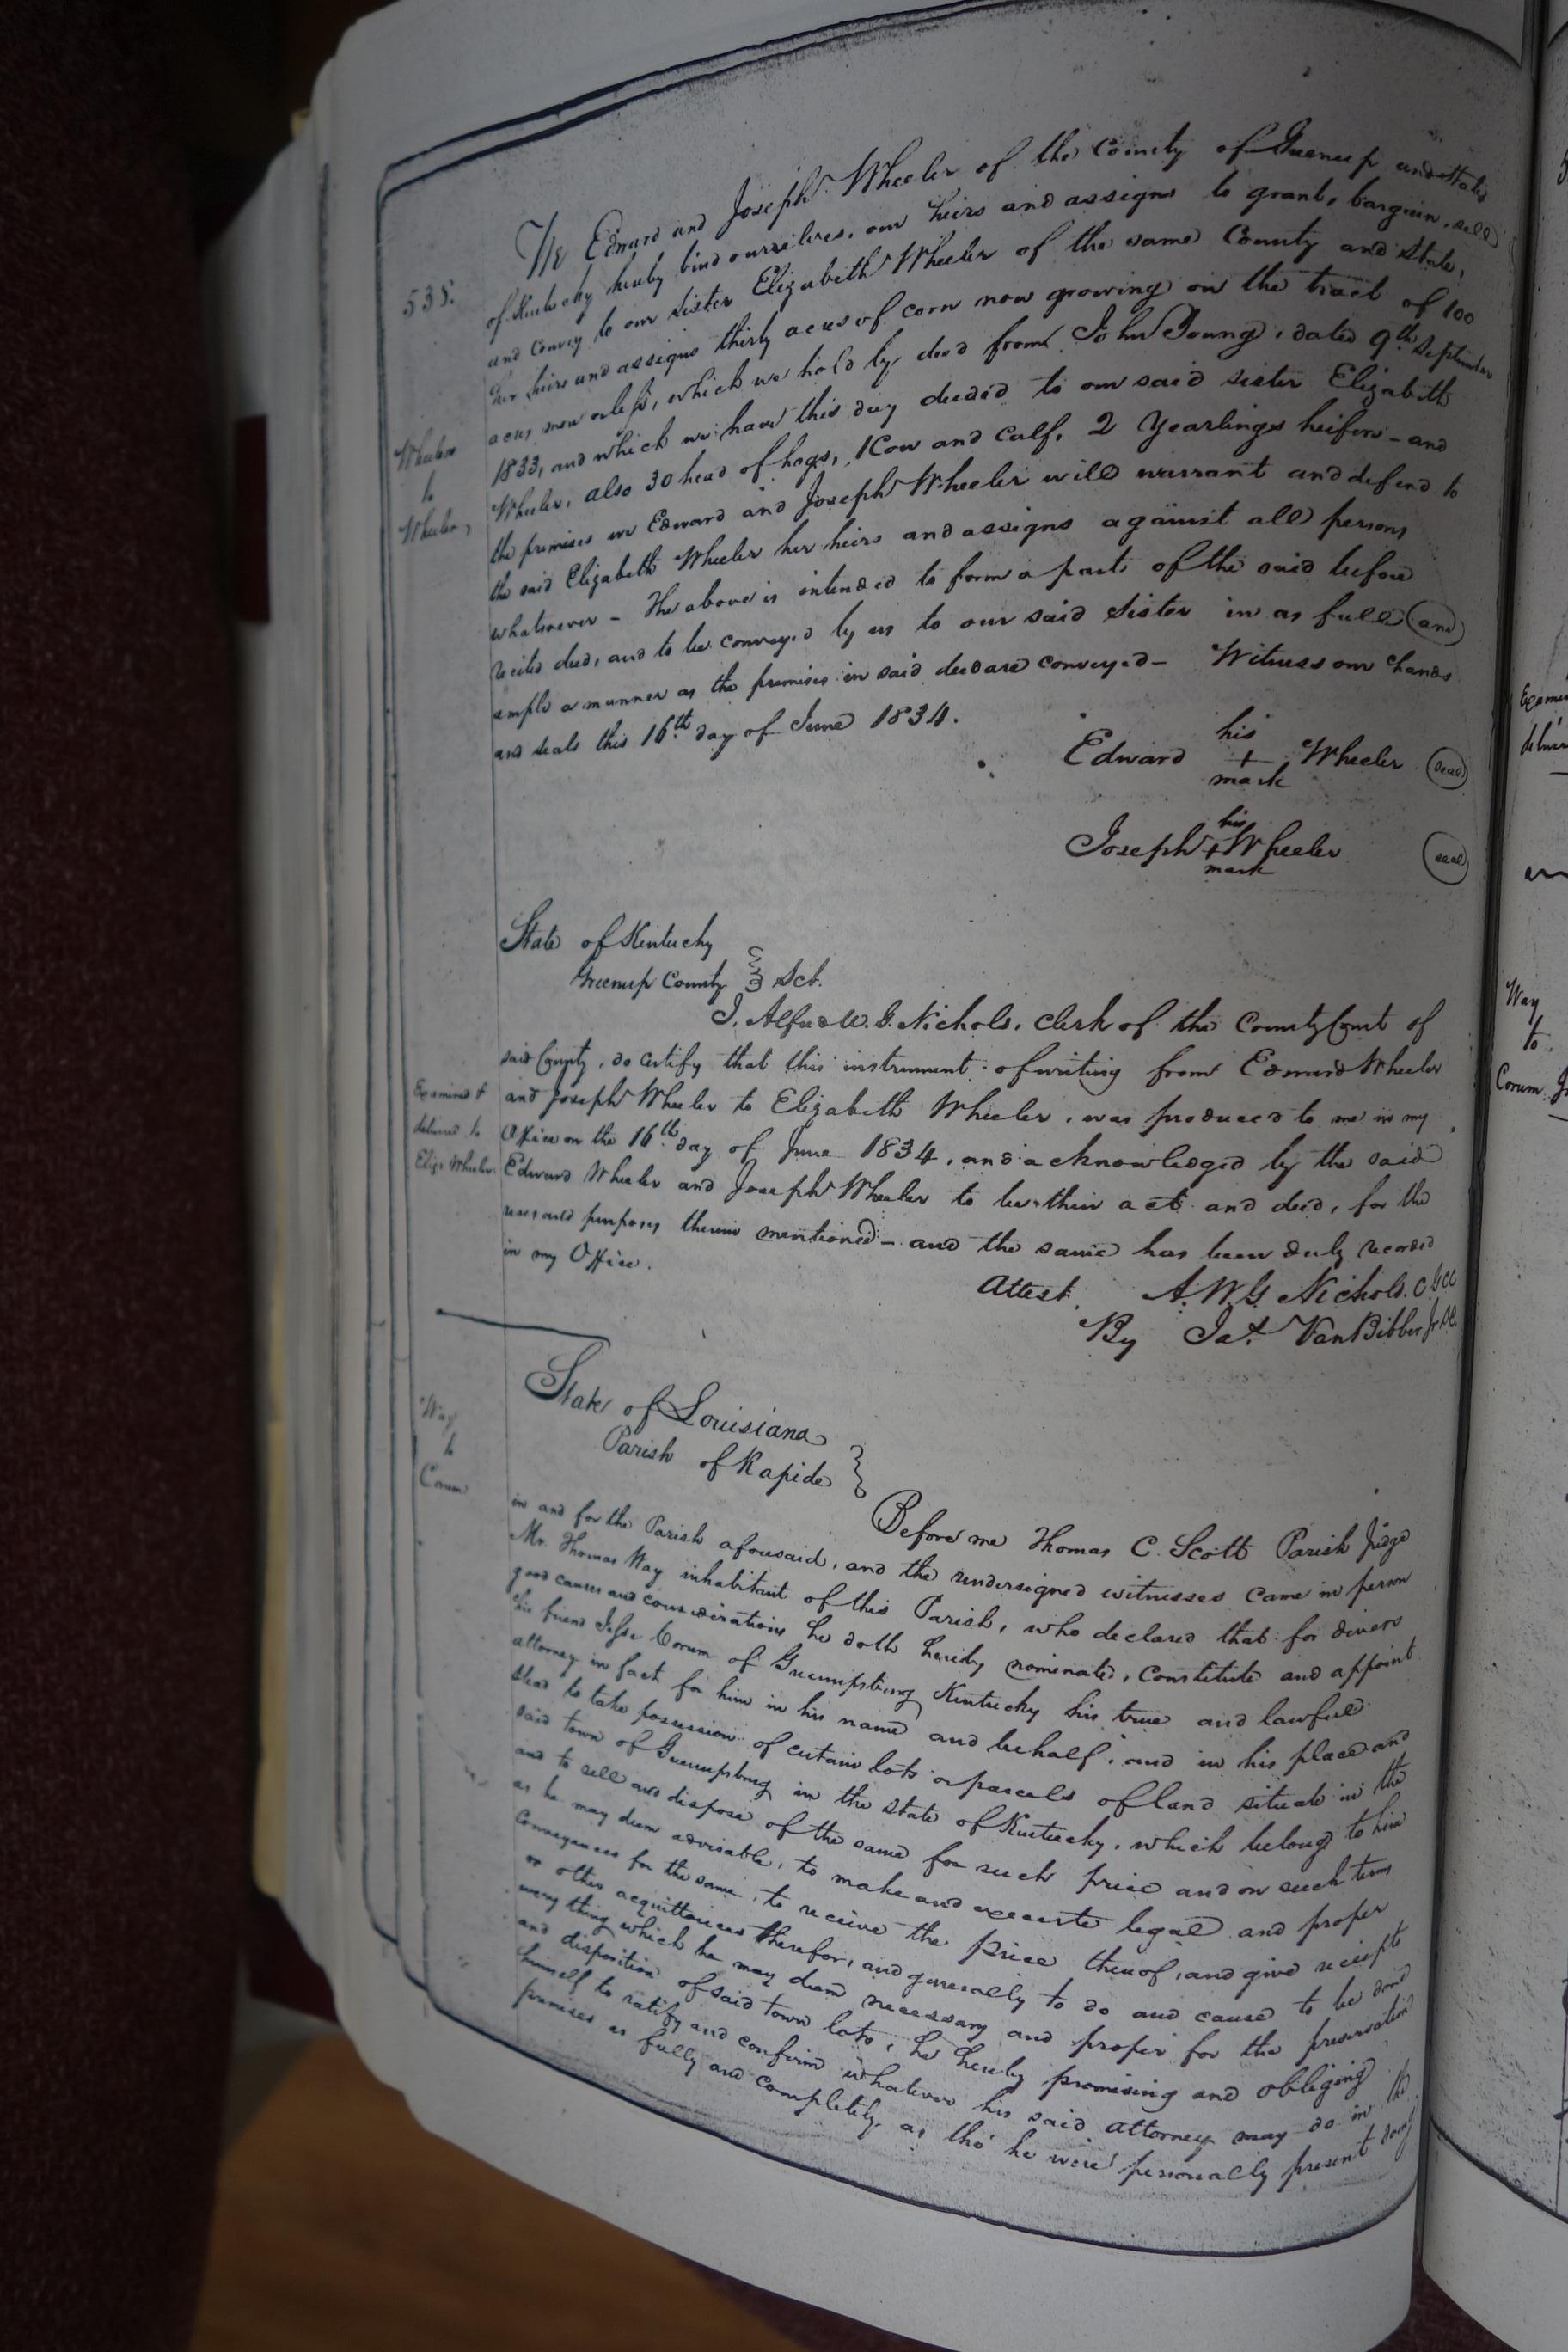 538.
We Edward and Joseph Wheeler of the County of Greenup and State
of Kentucky hereby bind ourselves, our heirs and assigns to grant, bargain, sell
and convey to our sister Elizabeth Wheeler of the same County and State,
her heirs and assigns thirty acres of corn now growing on the tract of 100
acres more or less, which we hold by deed from John Young, dated 9th September
1833, and which we have this day deeded to our said sister Elizabeth
Wheeler, also 30 head of hogs, 1 Cow and Calf, 2 Yearlings heifers - and
the premises we Edward and Joseph Wheeler will warrant and defend to
the said Elizabeth Wheeler her heirs and assigns against all persons
whatsoever - The above is intended to form a part of the said before
recited deed, and to be conveyed by us to our said Sister in as full and
ample a manner as the premises in said deed are conveyed - Witness our hands
and seals this 16th day of June 1834.
Wheelers
to
Wheeler,
his
Edward + Wheeler (seal)
mark
his
Joseph + Wheeler (seal)
mark
State of Kentucky
Greenup County } Sct.
I, Alfred W. G. Nichols, Clerk of the County Court of
said County, do certify that this instrument of writing from Edward Wheeler
and Joseph Wheeler to Elizabeth Wheeler, was produced to me in my
Office on the 16th day of June 1834, and acknowledged by the said
Edward Wheeler and Joseph Wheeler to be their act and deed, for the
uses and purposes therein mentioned - and the same has been duly recorded
in my Office.
Examined &
delivered to
Eliza Wheeler.
Attest, A. W. G. Nichols. C.G.C.C
By Jas. VanBibber Jr. D.C.
Way
to
Corum
State of Louisiana
Parish of Rapide }
Before me Thomas C. Scott Parish Judge
in and for the Parish aforesaid, and the undersigned witnesses came in person
Mr. Thomas Way inhabitant of this Parish, who declared that for divers
good causes and considerations he doth hereby nominate, Constitute and appoint
his friend Jesse Corum of Greenupsburg Kentucky his true and lawful
attorney in fact for him in his name and behalf, and in his place and
stead to take possession of certain lots or parcels of land situate in the
said town of Greenupsburg in the State of Kentucky, which belong to him
and to sell and dispose of the same for such price and on such terms
as he may deem advisable, to make and execute legal and proper
Conveyances for the same, to receive the price thereof, and give receipts
or other acquittances therefor, and generally to do and cause to be done
every thing which he may deem necessary and proper for the preservation
and disposition of said town lots, he hereby promising and obliging
himself to ratify and confirm whatever his said attorney may do in the
premises as fully and completely, as tho' he were personally present doing
Way
to
Corum